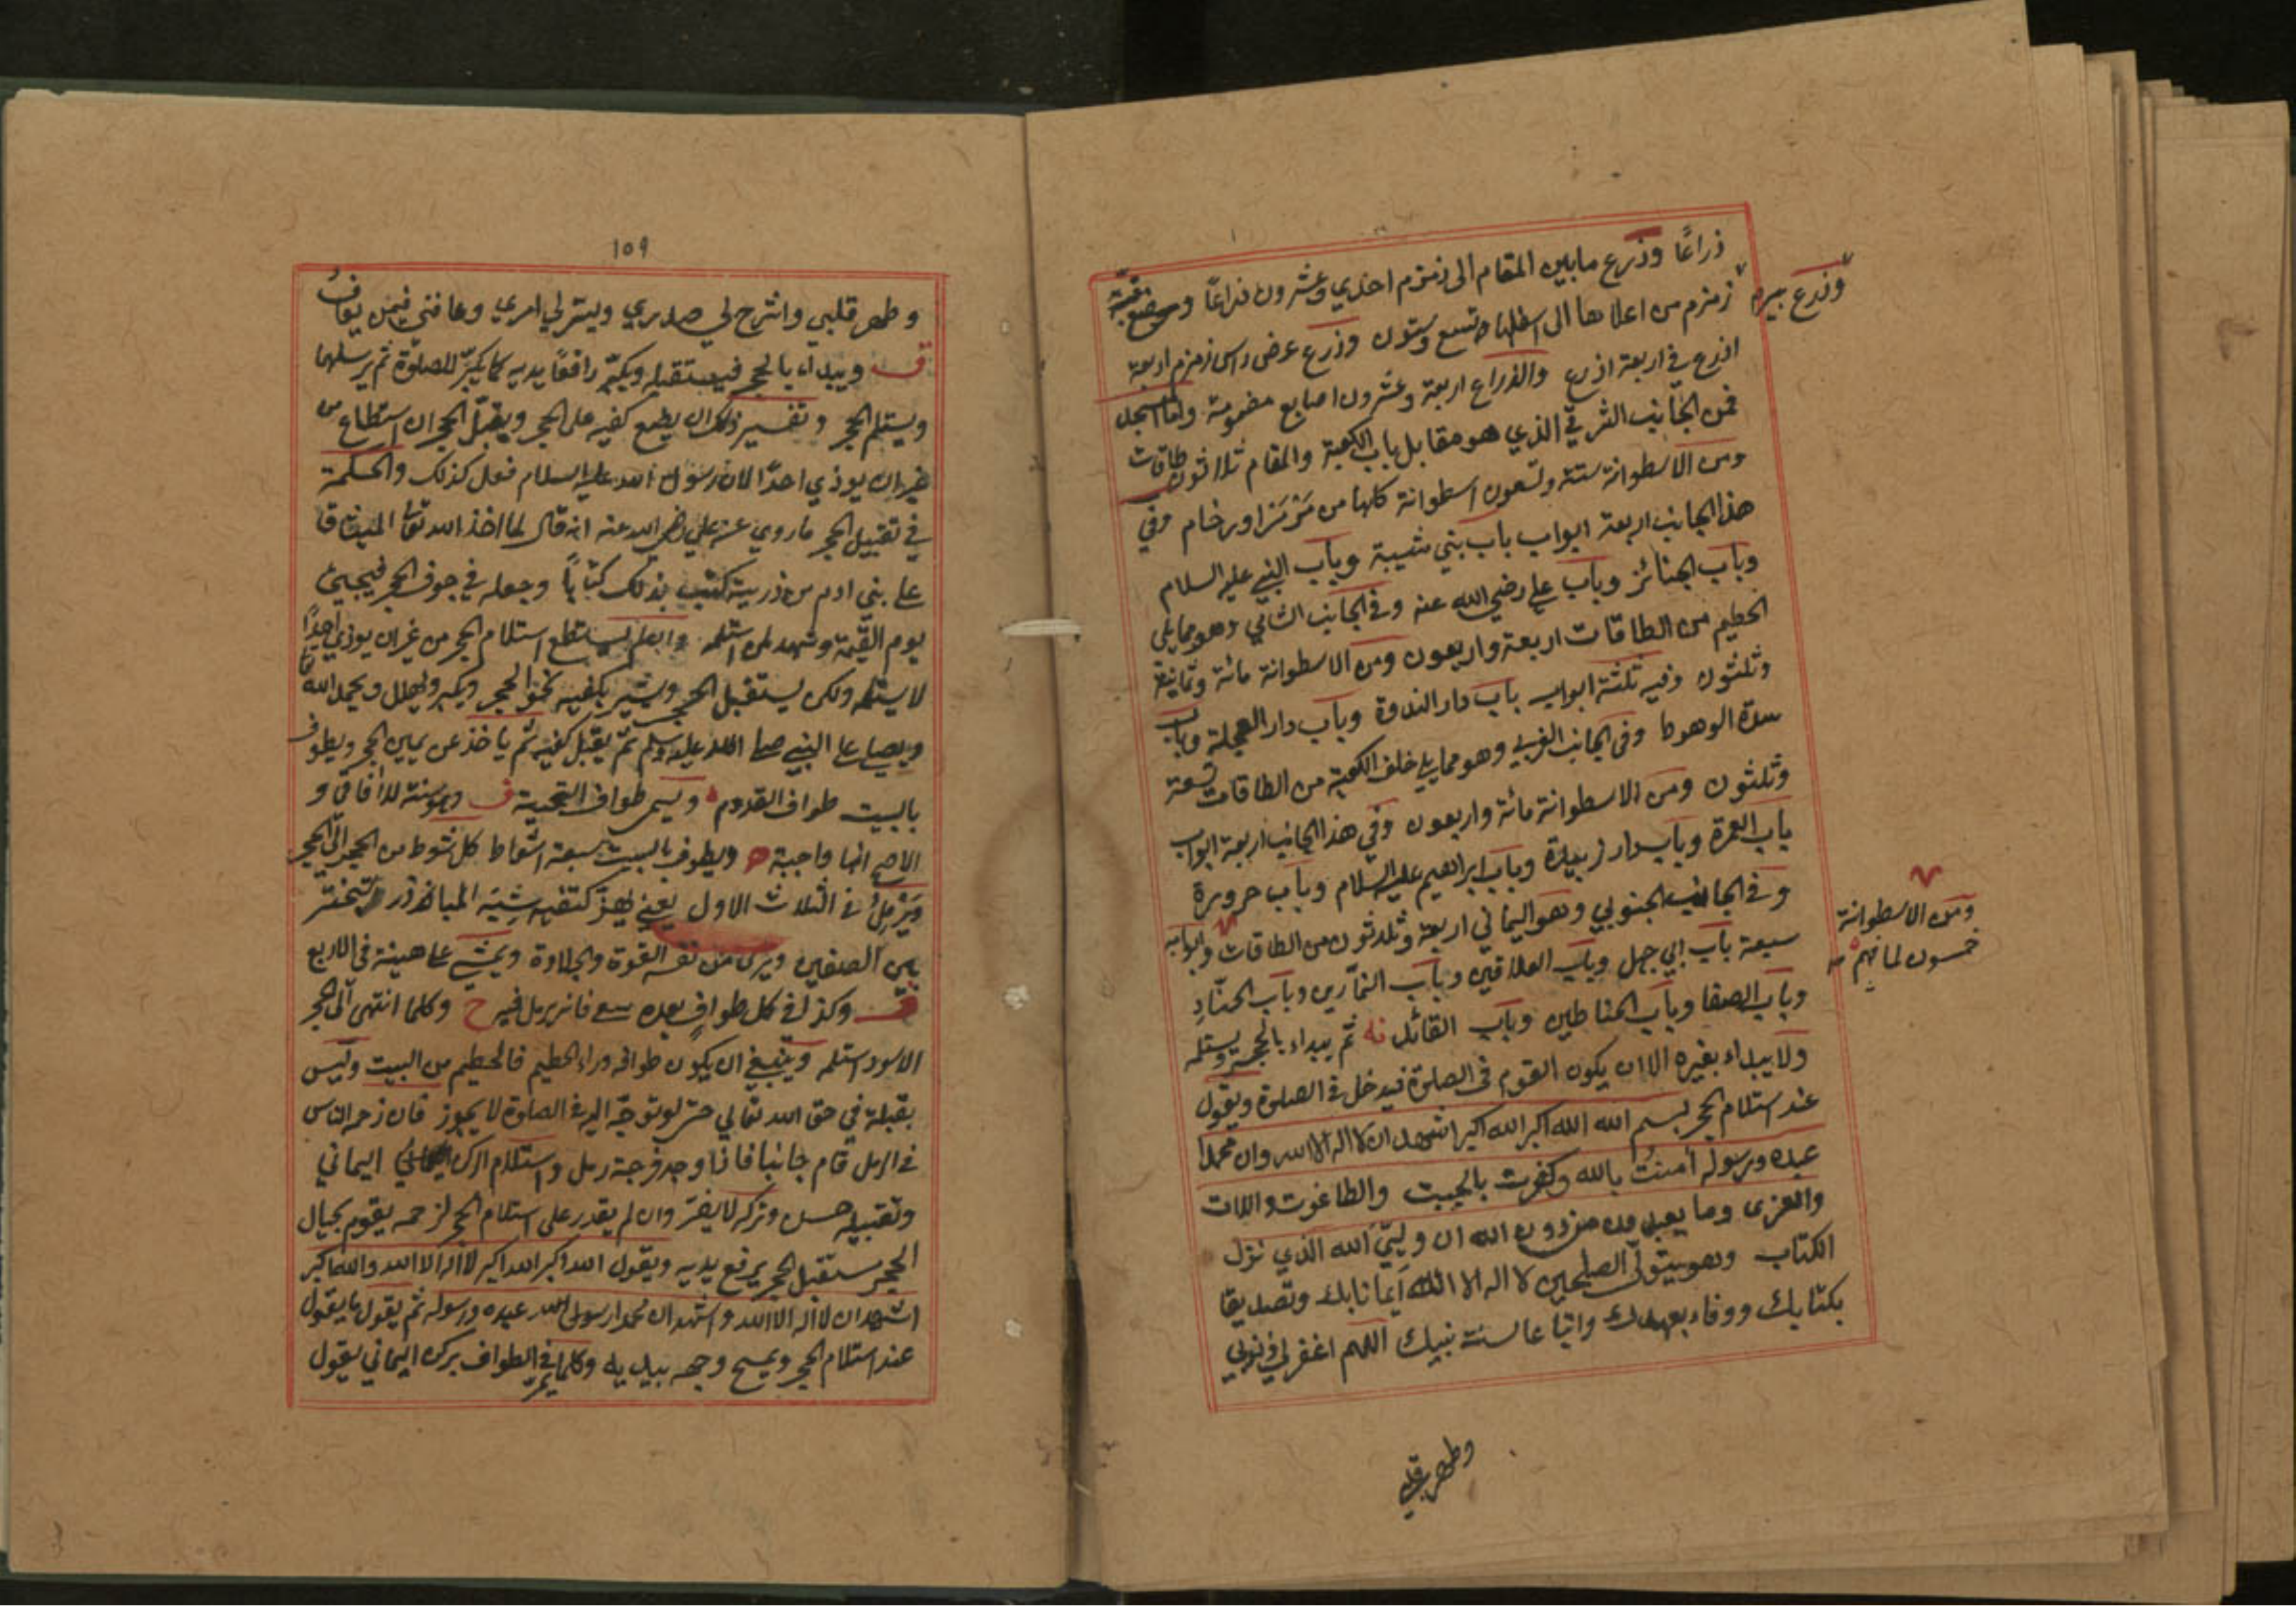 ذراعًا وذرع مابين المقام الى زمزم احدي وعشرون ذراعًا
وذرع بير
زمزم من اعلاها الى اسفلها تسع وستون وذرع عرض راس زمزم اربعة
اذرع في اربعة اذرع والذراع اربعة وعشرون اصابع مضمومة واما المسجد
فمن الجانب الشرقي الذي هو مقابل باب الكعبة والمقام ثلاثون طاقات
ومن الاسطوانة ستة وتسعون اسطوانة كلها من مَرْمَر اورخام وفي
هذا الجانب اربعة ابواب باب بني شيبة وباب النبي عليه السلام
وباب الجنائز وباب علي رضي الله عنه وفي الجانب الشامي وهو مما يلي
الحطيم من الطاقات اربعة واربعون ومن الاسطوانة مائة وثمانية
وثلثون وفيه ثلثة ابواب باب دار الندوة وباب دار العجلة وباب
سدة الوهوط وفي الجانب الغربي وهو مما يلي خلف الكعبة من الطاقات تسعة
وثلثون ومن الاسطوانة مائة واربعون وفي هذا الجانب اربعة ابواب
باب العمرة وباب دار زبيدة وباب ابراهيم عليه السلام وباب حرورة
وفي الجانب الجنوبي وهو اليماني اربعة وثلاثون من الطاقات وابوابه
ومن الاسطوانة
خمسون
سبعة باب ابي جهل وباب العلافين وباب التمّارين وباب الحنّادِ
وباب الصفا وباب الحناطين وباب القائل ثم يبداء بالحجر ويستلمه
ولا يبداء بغيره الا ان يكون القوم في الصلوة فيدخل في الصلوة ويقول
عند استلام الحجر بسم الله الله اكبر الله اكبر اشهد ان لا اله الا الله وان محمدا
عبده ورسوله امنتُ بالله وكفرت بالجبت والطاغوت واللات
والعزى وما يعبد من دون الله ان وليّيَ الله الذي نزل
الكتاب وهو يتولّى الصلحين لا اله الا الله ايمانا بك وتصديقا
بكتابك ووفاء بعهدك واتباعا لسنة نبيك اللهم اغفر لي ذنوبي
وطهر قلبي
١٥٩
وطهر قلبي واشرح لي صدري ويسّر لي امري وعافني فيمن
ويبداء بالحجر فيستقبله ويكبّر رافعًا يديه كما يكبّر للصلوة ثم يرسلهما
ويستلم الحجر وتفسير ذلك ان يضع كفيه على الحجر ويقبّل الحجر ان استطاع من
غير ان يوذي احدًا لان رسول الله عليه السلام فعل كذلك والحكمة
في تقبيل الحجر ما روي عن علي رضي الله عنه انه قال لما اخذ الله تعا الميثاق
على بني ادم من ذريته كتب بذلك كتابًا وجعله في جوف الحجر فيجيئ
يوم القيمة وشهد لمن استلمه وان لم يستطع استلام الحجر من غير ان يوذي احدًا
لا يستلمه ولكن يستقبل الحجر ويشير بكفيه نحو الحجر ويكبر ويهلل ويحمد الله تعا
ويصلي على النبي صلى الله عليه وسلم ثم يقبل كفيه ثم ياخذ عن يمين الحجر ويطوف
بالبيت طواف القدوم ويسمى طواف التحية ف وهو سنة للافاقي و
الاصح انها واجبة ويطوف بالبيت سبعة اشواط كل شوط من الحجر الى الحجر
ويَرْمِلُ في الثلاث الاول يعني يهزّ كتفيه شِبْهَ المبارز يتبختر
بين الصفين ويرى من نفسه القوة والجلادة ويمشي على هينته في الاربع
وكذا في كل طوافٍ بعده سعي فانه يرمل فيه ح وكلما انتهى الى الحجر
الاسود استلمه وينبغي ان يكون طوافه وراء الحطيم فالحطيم من البيت وليس
بقبلة في حق الله تعالي حتى لو توجّه اليه في الصلوة لا يجوز فان زحمه الناس
في الرمل قام جانبا فاذا وجد فرجة رمل واستلام الركن اليماني
وتقبيله حسن وتركه لا يضرّ وان لم يقدر على استلام الحجر لزحمه يقوم بحيال
الحجر مستقبل الحجر يرفع يديه ويقول الله اكبر الله اكبر لا اله الا الله والله اكبر
اشهد ان لا اله الا الله واشهد ان محمدا رسول الله عبده ورسوله ثم يقول ما يقول
عند استلام الحجر ويمسح وجهه بيديه وكلما يمرّ في الطواف بركن اليماني يقول